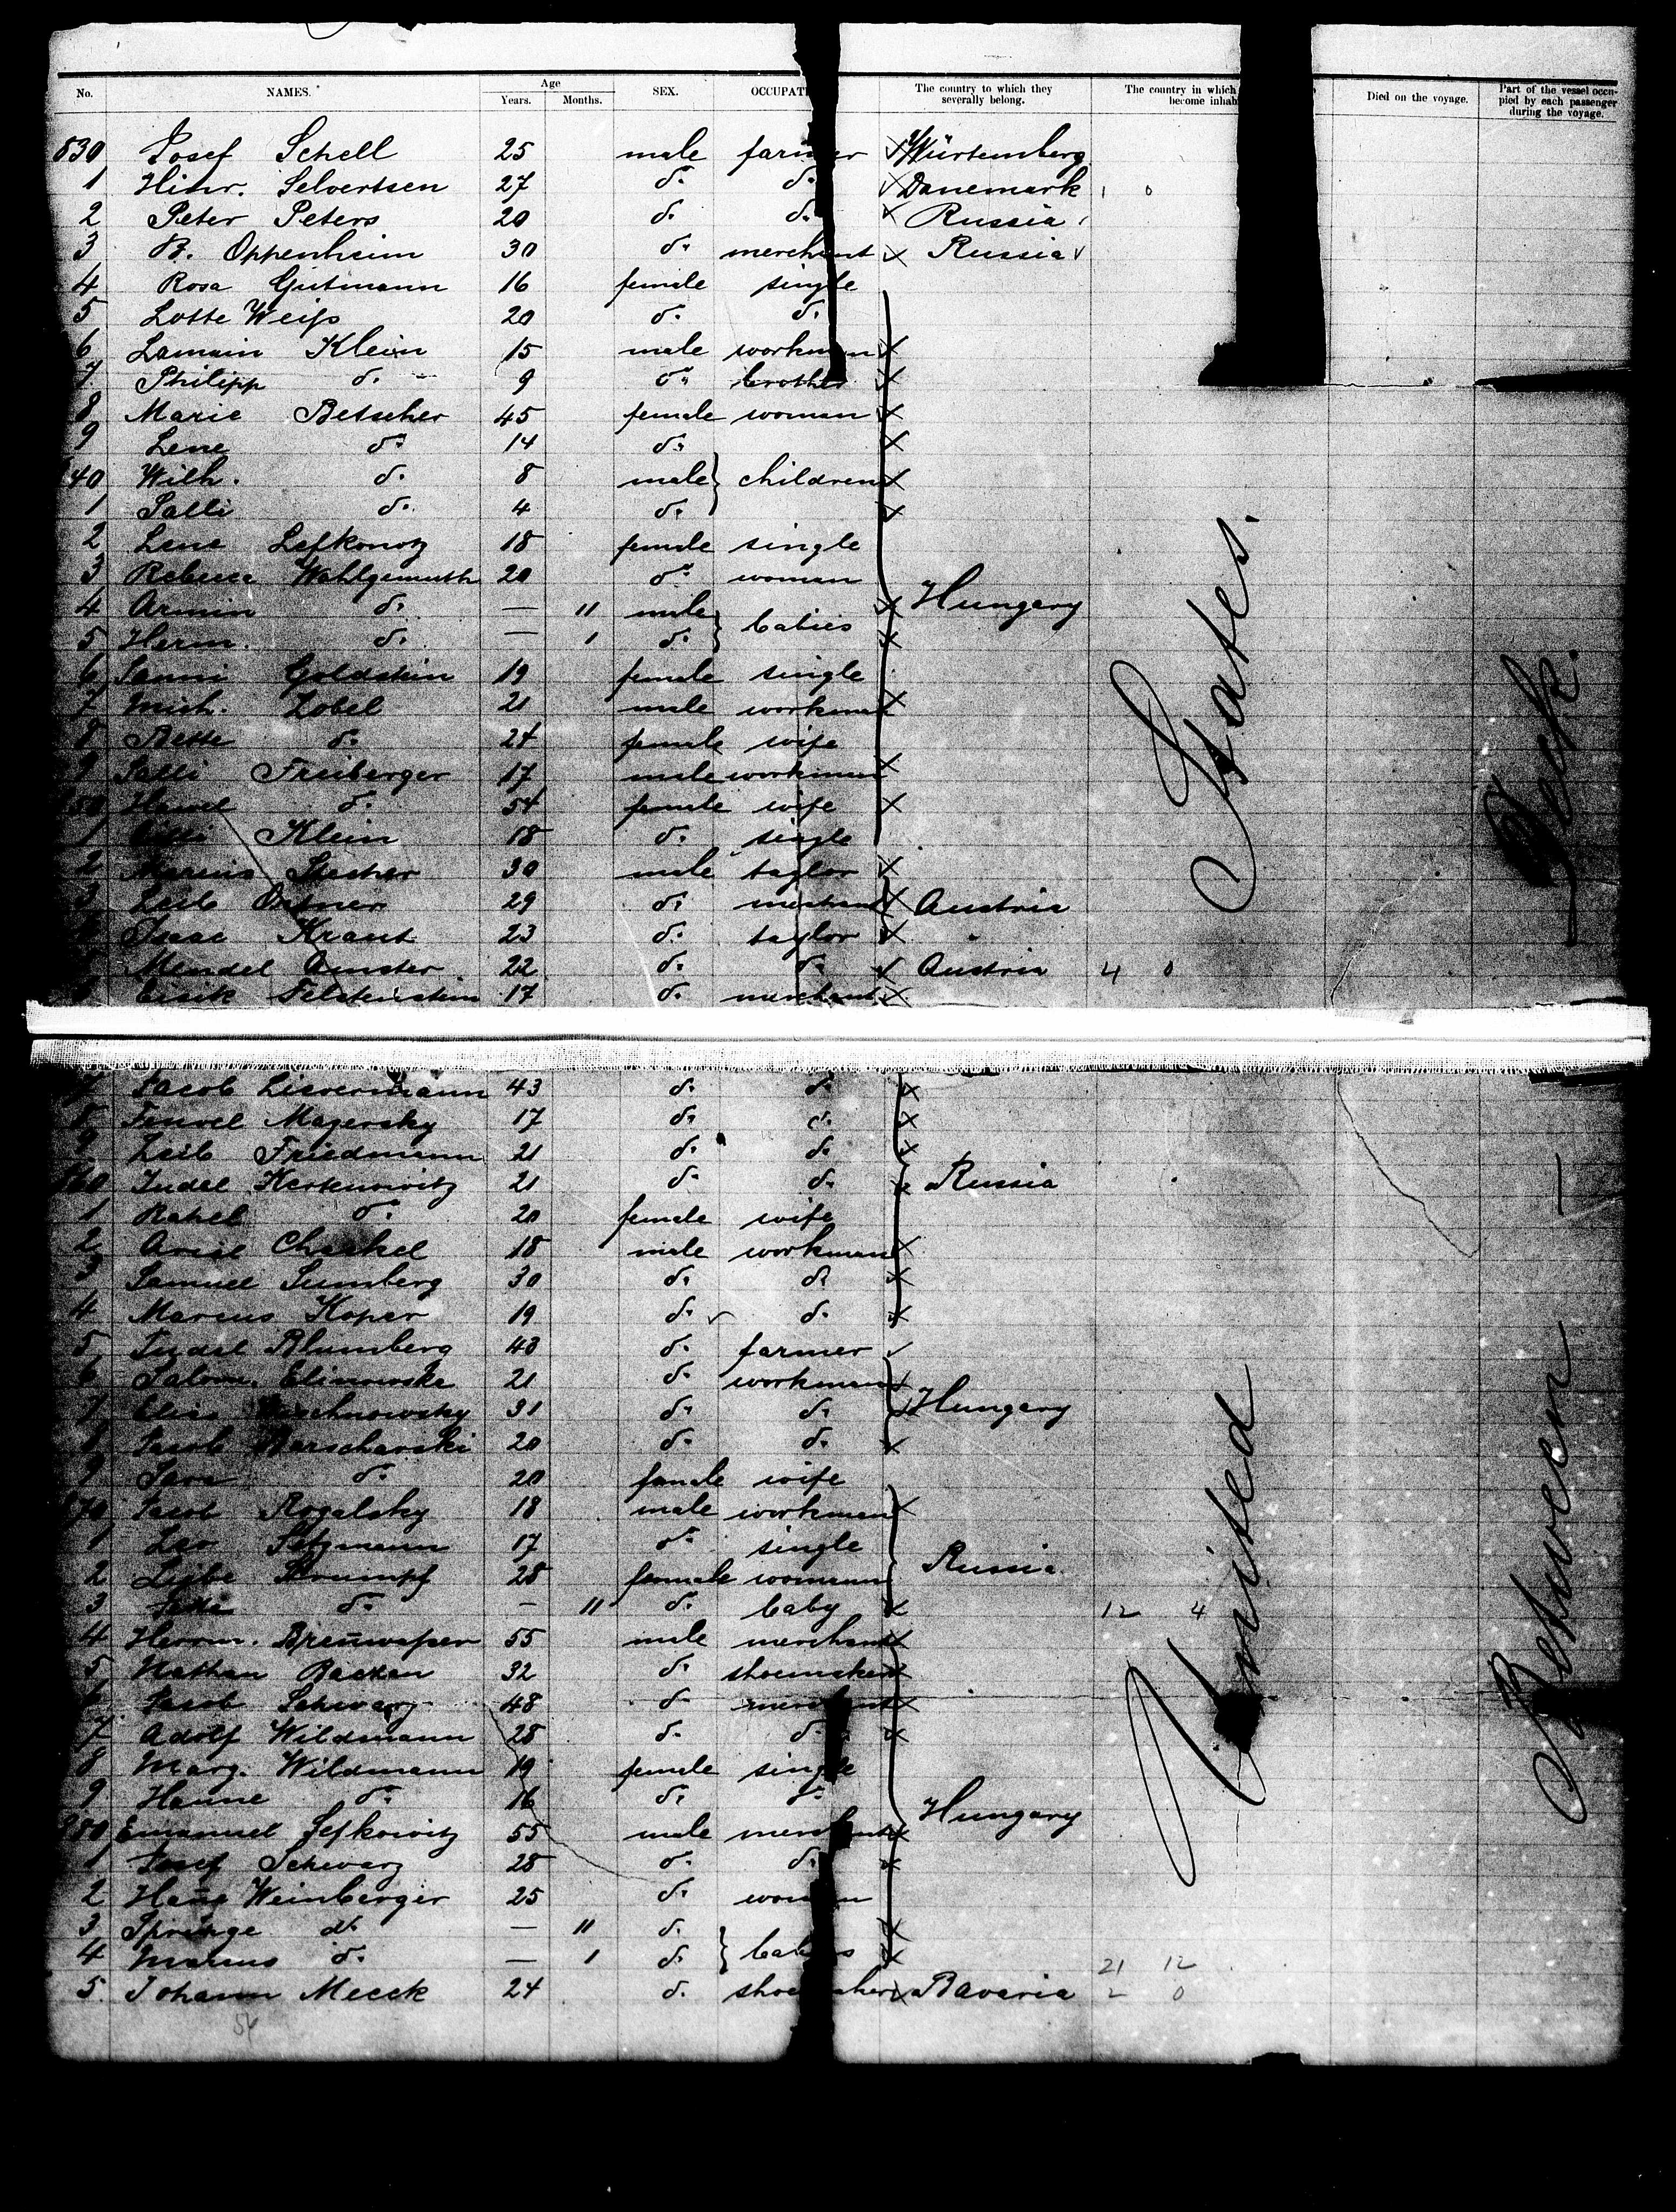 No. NAMES. Age Years. Months. SEX. The country to which they severally belong. The country in which become Died on the voyage. Part of the vessel occupied by each passenger during the voyage.
830 Josef Schell 25 male farmer Würtemberg
1 Hinr. Selvertsen 27 do. do. Danemark
2 Peter Peters 20 do. do. Russia
3 B. Oppenheim 30 do. merchant Russia
4 Rosa Gutmann 16 female single
5 Lotte Weiss 20 do. do.
6 Klein 15 male workman
7 Philipp do. 9 do. brother
8 Marie Betscher 45 female woman
9 Lene do. 14 do.
40 Wilh. do. 8 male children
1 Salli do. 4 do.
2 Lene 18 female single
3 Rebecca Wohlgemuth 20 do. woman
4 Armin do. — 11 male babies Hungary
5 Herm. do. — 1 do.
6 Goldstein 19 female single
7 Mich. Zobel 21 male workman
8 Bette do. 24 female wife
9 Salli Freiberger 17 male workman
850 do. 54 female wife
1 Klein 18 do. single
2 30 male taylor
3 Leib 29 do. merchant Austria
Isaac Kraut 23 do. taylor
Mendel Amster 22 do. do. Austria 4 0
17 do. merchant
7 Jacob 43 do. do.
8 Magersky 17 do. do.
9 Leib Friedmann 21 do. do.
860 Judel 21 do. do. Russia
1 Rahel do. 20 female wife
2 18 male workman
3 Samuel Sumberg 30 do. do.
4 Marcus Koper 19 do. do.
5 Judel Blumberg 40 do. farmer
6 Salom. 21 do. workman
7 31 do. do. Hungary
8 Jacob 20 do. do.
9 Sara do. 20 female wife
870 Jacob Rogalsky 18 male workman
1 17 do. single
2 Liebe 28 female woman Russia
3 do. — 11 do. baby 12 4
4 Herm. 55 male merchant
5 Nathan 32 do. shoemaker
6 Jacob Schwarz 48 do. merchant
7 Adolf Wildmann 28 do. do.
8 Marg. Wildmann 19 female single
9 Hanne do. 16 do. do.
880 Emanuel Lefkowitz 55 male merchant Hungary
1 Josef Schwarz 28 do. do.
2 Weinberger 25 do. woman
3 do. — 11 do.
4 Marcus do. — 1 do. babies 21 12
5 Johann Meeck 24 do. shoemaker Bavaria 2 0
54
United States.
Between Deck.